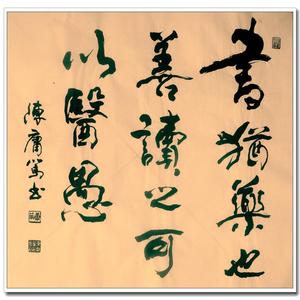 書猶藥也
善讀之可
以醫愚
陳庸篤書